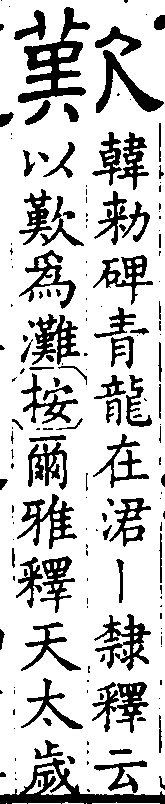 歎
韓勑碑青龍在涒丨隸釋云
以歎爲灘按爾雅釋天太歲